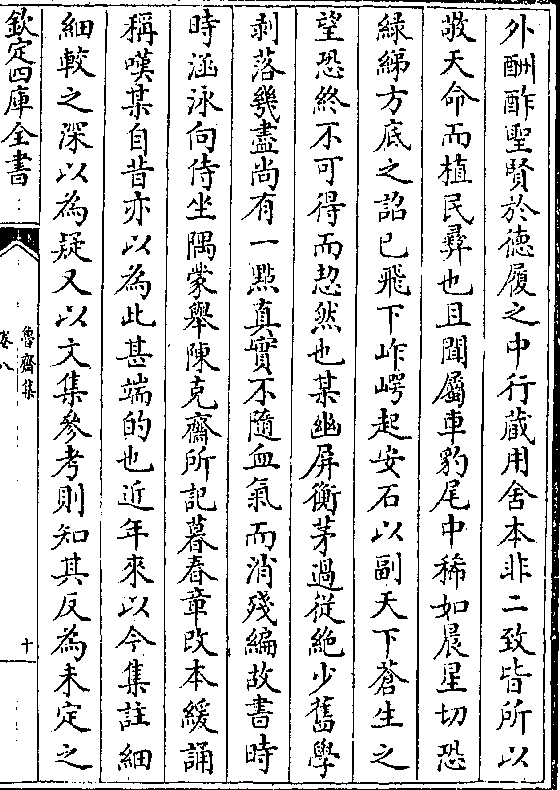 外酬酢聖賢於徳履之中行蔵用舍本非二致皆所以
敬天命而植民彞也且聞屬車豹尾中稀如晨星切恐
緑綈方底之詔已飛下岞崿起安石以副天下蒼生之
望恐終不可得而恝然也某幽屏衡茅過從絶少舊學
剥落幾盡尚有一點真實不隨血氣而消殘編故書時
時涵泳向侍坐隅蒙舉陳克齋所記暮春章改本緩誦
稱嘆某自昔亦以為此甚端的也近年來以今集註細
細較之深以為疑又以文集參考則知其反為未定之
欽定四庫全書
魯齋集
卷八
十